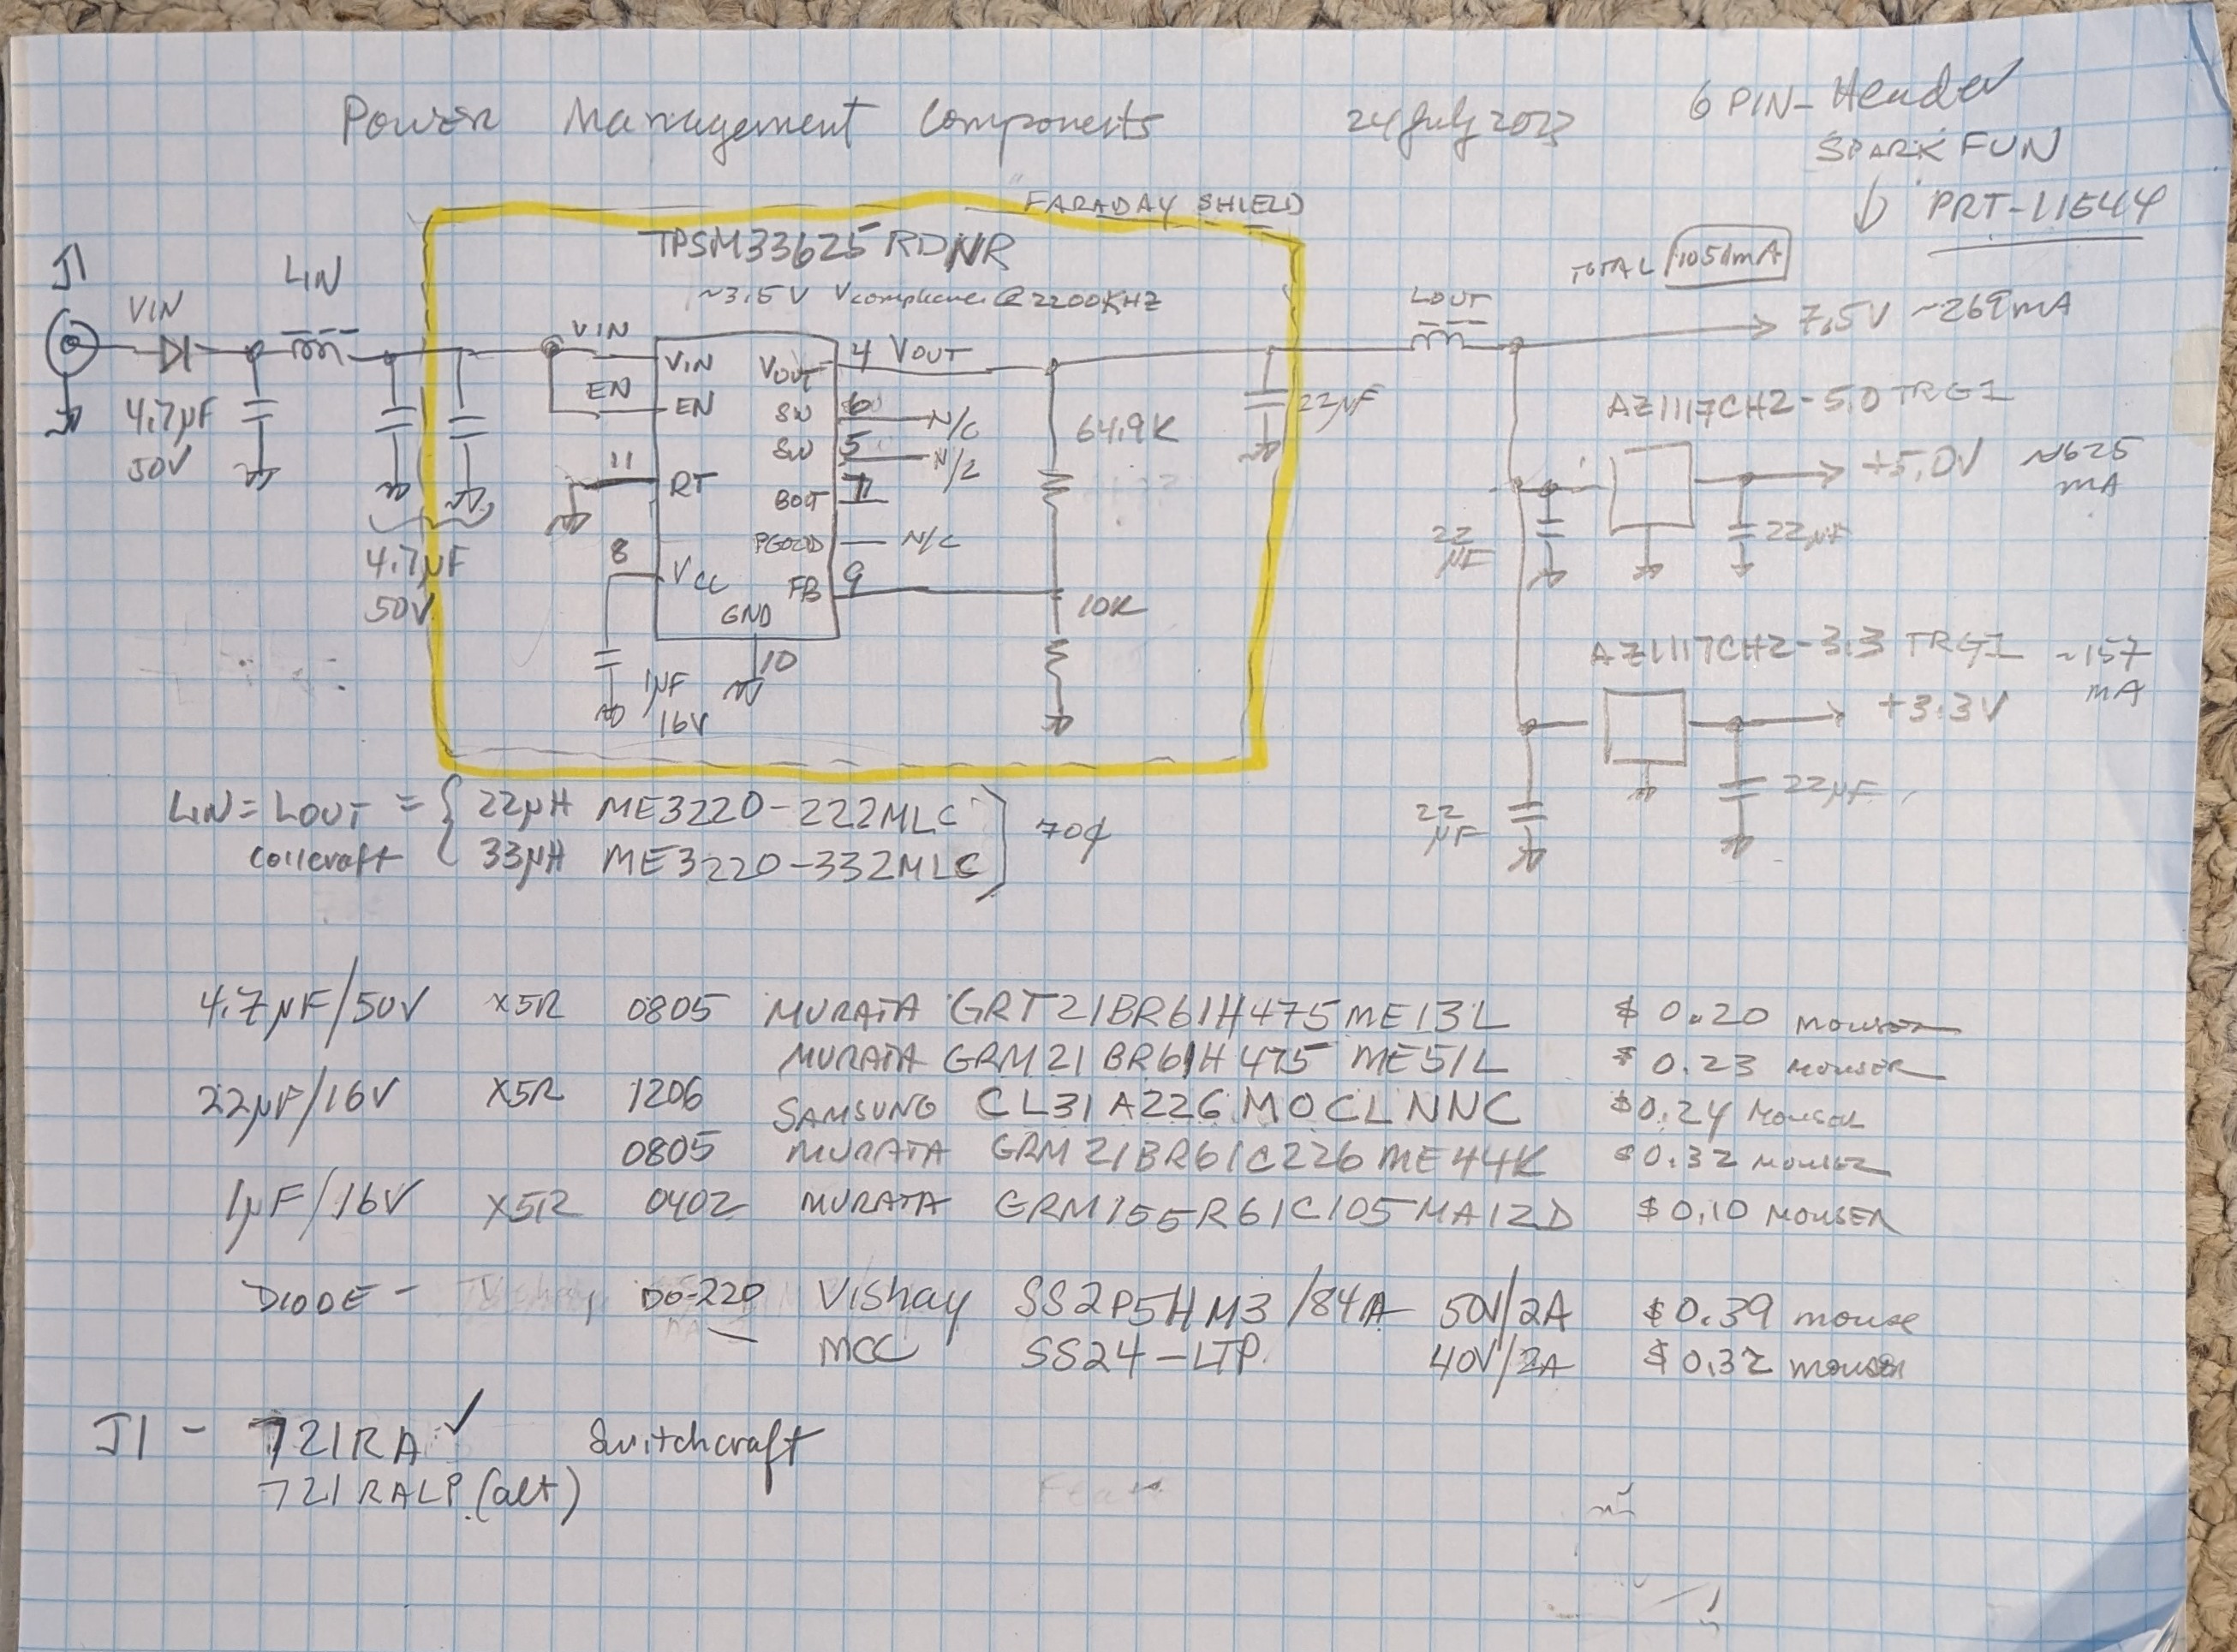 Power Management Components 24 July 2023
6 PIN-Header
SPARKFUN
PRT-11544
"FARADAY SHIELD
TPSM33625RDNR
~3.5V Vcompliance @ 2200KHZ
J1
VIN
LIN
4.7µF
50V
4.7µF
50V
VIN
EN
VIN
EN
11
RT
8
VCC
1µF
16V
GND
10
VOUT
4 VOUT
SW
6 N/C
SW
5 N/C
BOOT
1
PGOOD
N/C
FB
9
64.9K
10K
22µF
LOUT
TOTAL 1051mA
7.5V ~269mA
AZ1117CH2-5.0TRG1
+5.0V ~625
mA
22
µF
22µF
AZ1117CH2-3.3TRG1 ~157
mA
+3.3V
22
µF
22µF
LIN = LOUT = { 22µH ME3220-222MLC
Coilcraft { 33µH ME3220-332MLC
70¢
4.7µF/50V X5R 0805 MURATA GRT21BR61H475ME13L $0.20 MOUSER
MURATA GRM21BR61H475ME51L $0.23 MOUSER
22µF/16V X5R 1206 SAMSUNG CL31A226MOCLNNC $0.24 MOUSER
0805 MURATA GRM21BR61C226ME44K $0.32 MOUSER
1µF/16V X5R 0402 MURATA GRM155R61C105MA12D $0.10 MOUSER
DIODE - DO-220 Vishay SS2P5HM3/84A 50V/2A $0.39 mouse
MCC SS24-LTP 40V/2A $0.32 mouser
J1 - 721RA ✓ Switchcraft
721RALP (alt)